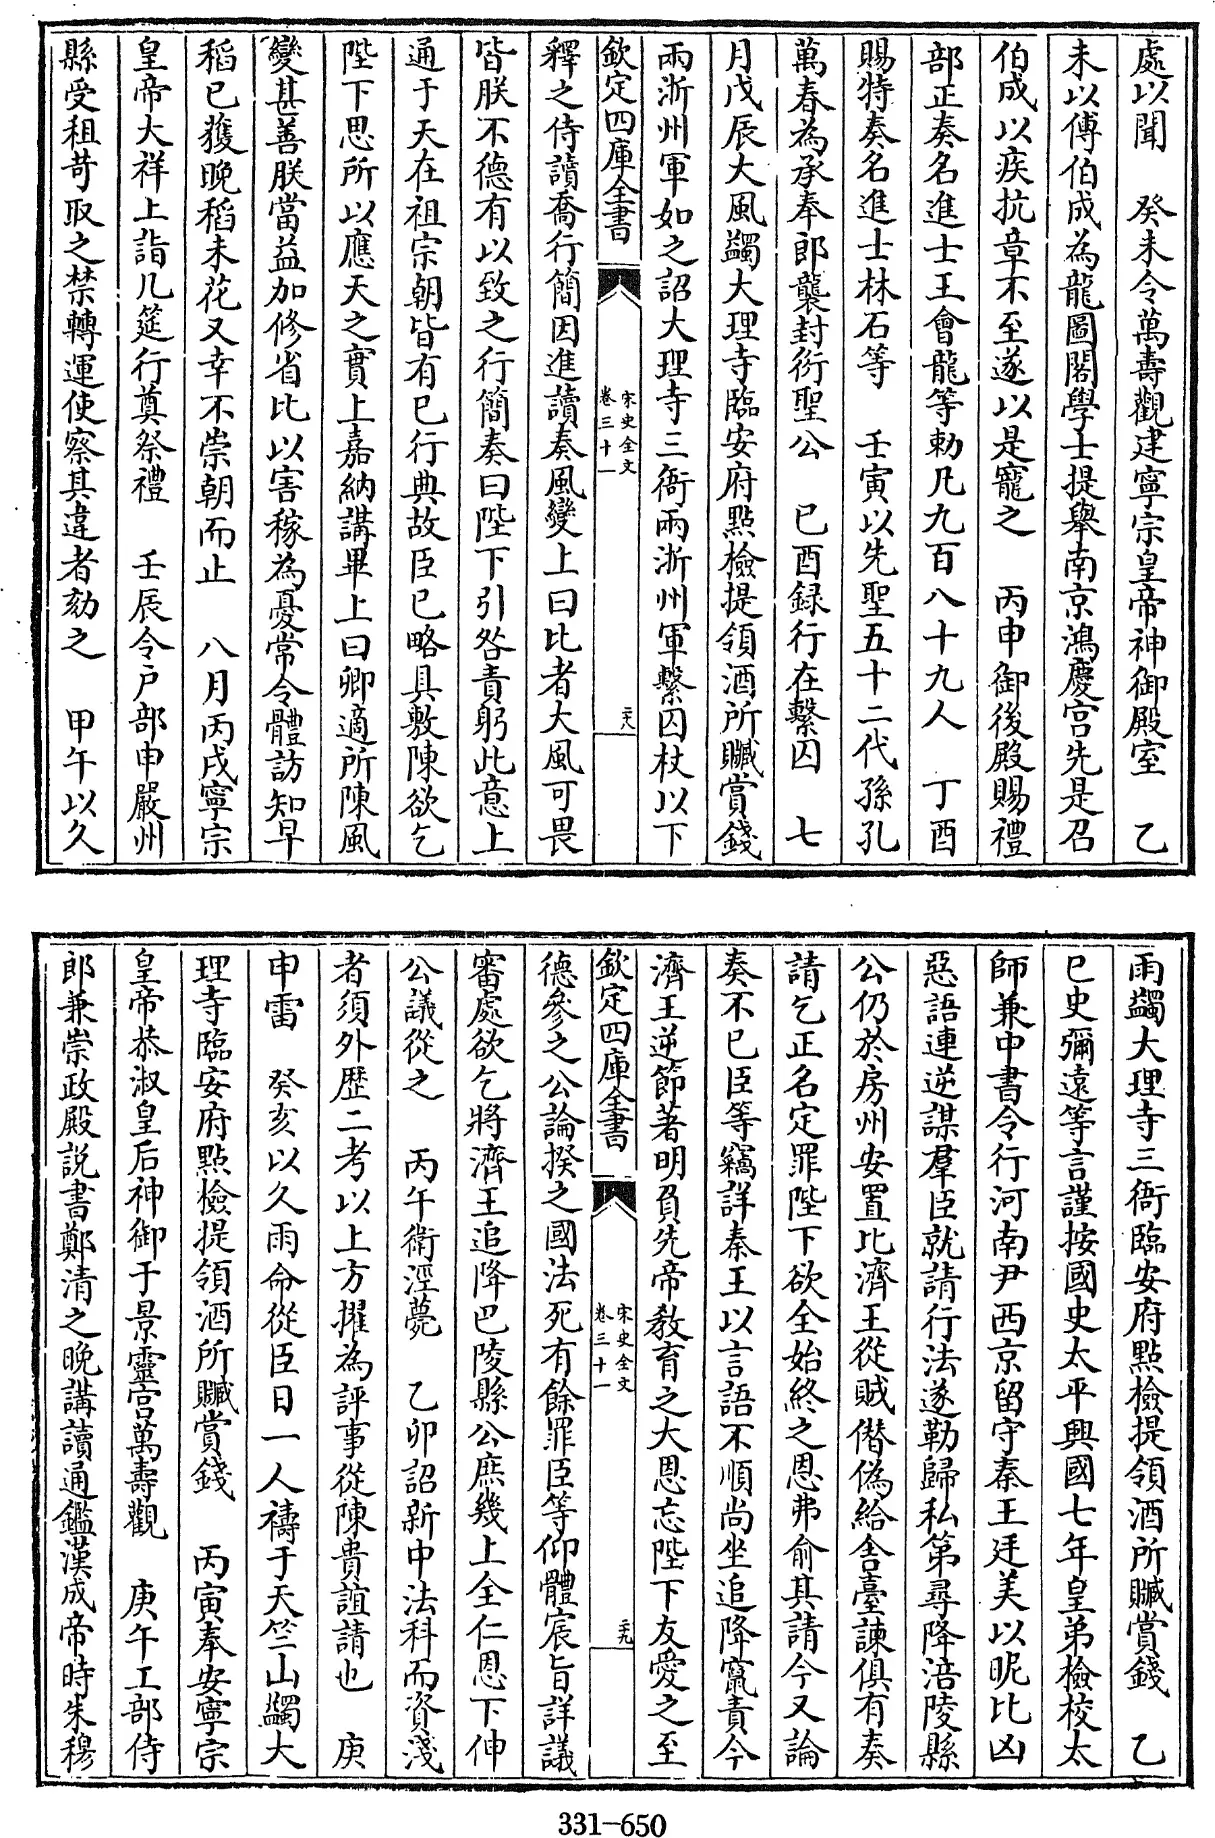 處以聞　癸未令萬壽觀建寧宗皇帝神御殿室　乙
未以傅伯成為龍圖閣學士提舉南京鴻慶宫先是召
伯成以疾抗章不至遂以是寵之　丙申御後殿賜禮
部正奏名進士王會龍等勅凡九百八十九人　丁酉
賜特奏名進士林石等　壬寅以先聖五十二代孫孔
萬春為承奉郎襲封衍聖公　已酉録行在繫囚　七
月戊辰大風蠲大理寺臨安府點檢提領酒所贓賞錢
兩浙州軍如之詔大理寺三衙兩浙州軍繫囚杖以下
欽定四庫全書
宋史全文
卷三十一
二八
釋之侍讀喬行簡因進讀奏風變上曰比者大風可畏
皆朕不德有以致之行簡奏曰陛下引咎責躬此意上
通于天在祖宗朝皆有已行典故臣已略具敷陳欲乞
陛下思所以應天之實上嘉納講畢上曰卿適所陳風
變甚善朕當益加修省比以害稼為憂常令體訪知早
稻已獲晩稻未花又幸不崇朝而止　八月丙戌寧宗
皇帝大祥上詣几筵行奠祭禮　壬辰令户部申嚴州
縣受租苛取之禁轉運使察其違者劾之　甲午以久
雨蠲大理寺三衙臨安府點檢提領酒所贓賞錢　乙
巳史彌遠等言謹按國史太平興國七年皇弟檢校太
師兼中書令行河南尹西京留守秦王廷美以昵比凶
惡語連逆謀羣臣就請行法遂勒歸私第尋降涪陵縣
公仍於房州安置比濟王從賊僭偽給舍臺諫俱有奏
請乞正名定罪陛下欲全始終之恩弗俞其請今又論
奏不已臣等竊詳秦王以言語不順尚坐追降竄責今
濟王逆節著明負先帝教育之大恩忘陛下友愛之至
欽定四庫全書
宋史全文
卷三十一
二九
德參之公論揆之國法死有餘罪臣等仰體宸旨詳議
審處欲乞將濟王追降巴陵縣公庶幾上全仁恩下伸
公議從之　丙午衛涇薨　乙卯詔新中法科而資淺
者須外歴二考以上方擢為評事從陳貴誼請也　庚
申雷　癸亥以久雨命從臣日一人禱于天竺山蠲大
理寺臨安府點檢提領酒所贓賞錢　丙寅奉安寧宗
皇帝恭淑皇后神御于景靈宫萬壽觀　庚午工部侍
郎兼崇政殿説書鄭清之晩講讀通鑑漢成帝時朱穆
331-650